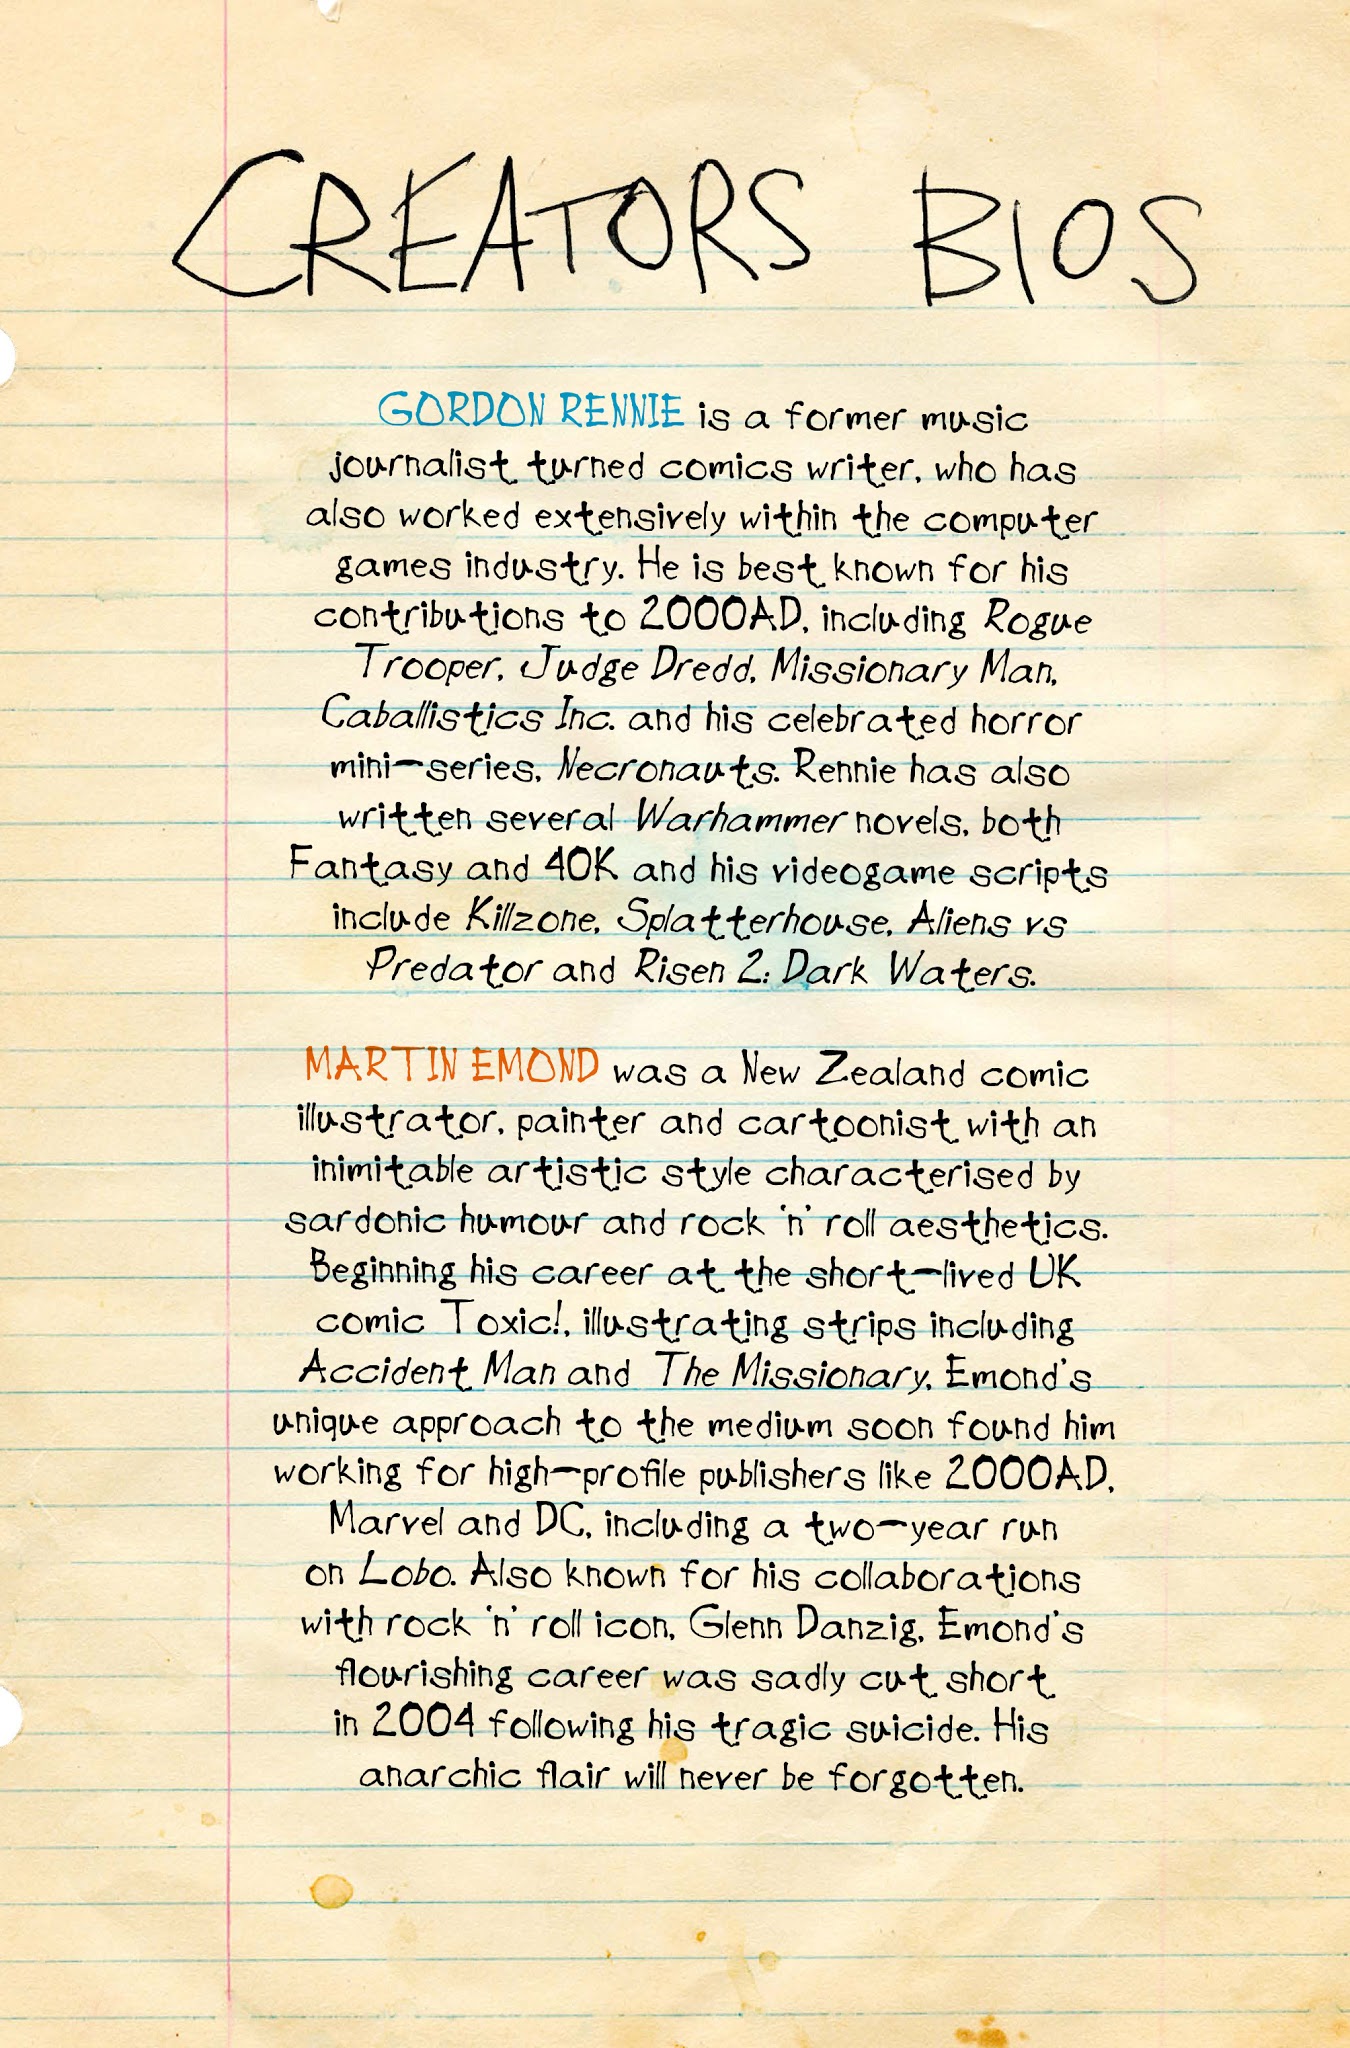 CREATORS BIOS
GORDON RENNIE is a former music
journalist turned comics writer, who has
also worked extensively within the computer
games industry. He is best known for his
contributions to 2000AD, including Rogue
Trooper, Judge Dredd, Missionary Man,
Caballistics Inc. and his celebrated horror
mini-series, Necronauts. Rennie has also
written several Warhammer novels, both
Fantasy and 40K and his videogame scripts
include Killzone, Splatterhouse, Aliens vs
Predator and Risen 2: Dark Waters.
MARTIN EMOND was a New Zealand comic
illustrator, painter and cartoonist with an
inimitable artistic style characterised by
sardonic humour and rock 'n' roll aesthetics.
Beginning his career at the short-lived UK
comic Toxic!, illustrating strips including
Accident Man and The Missionary, Emond's
unique approach to the medium soon found him
working for high-profile publishers like 2000AD,
Marvel and DC, including a two-year run
on Lobo. Also known for his collaborations
with rock 'n' roll icon, Glenn Danzig, Emond's
flourishing career was sadly cut short
in 2004 following his tragic suicide. His
anarchic flair will never be forgotten.